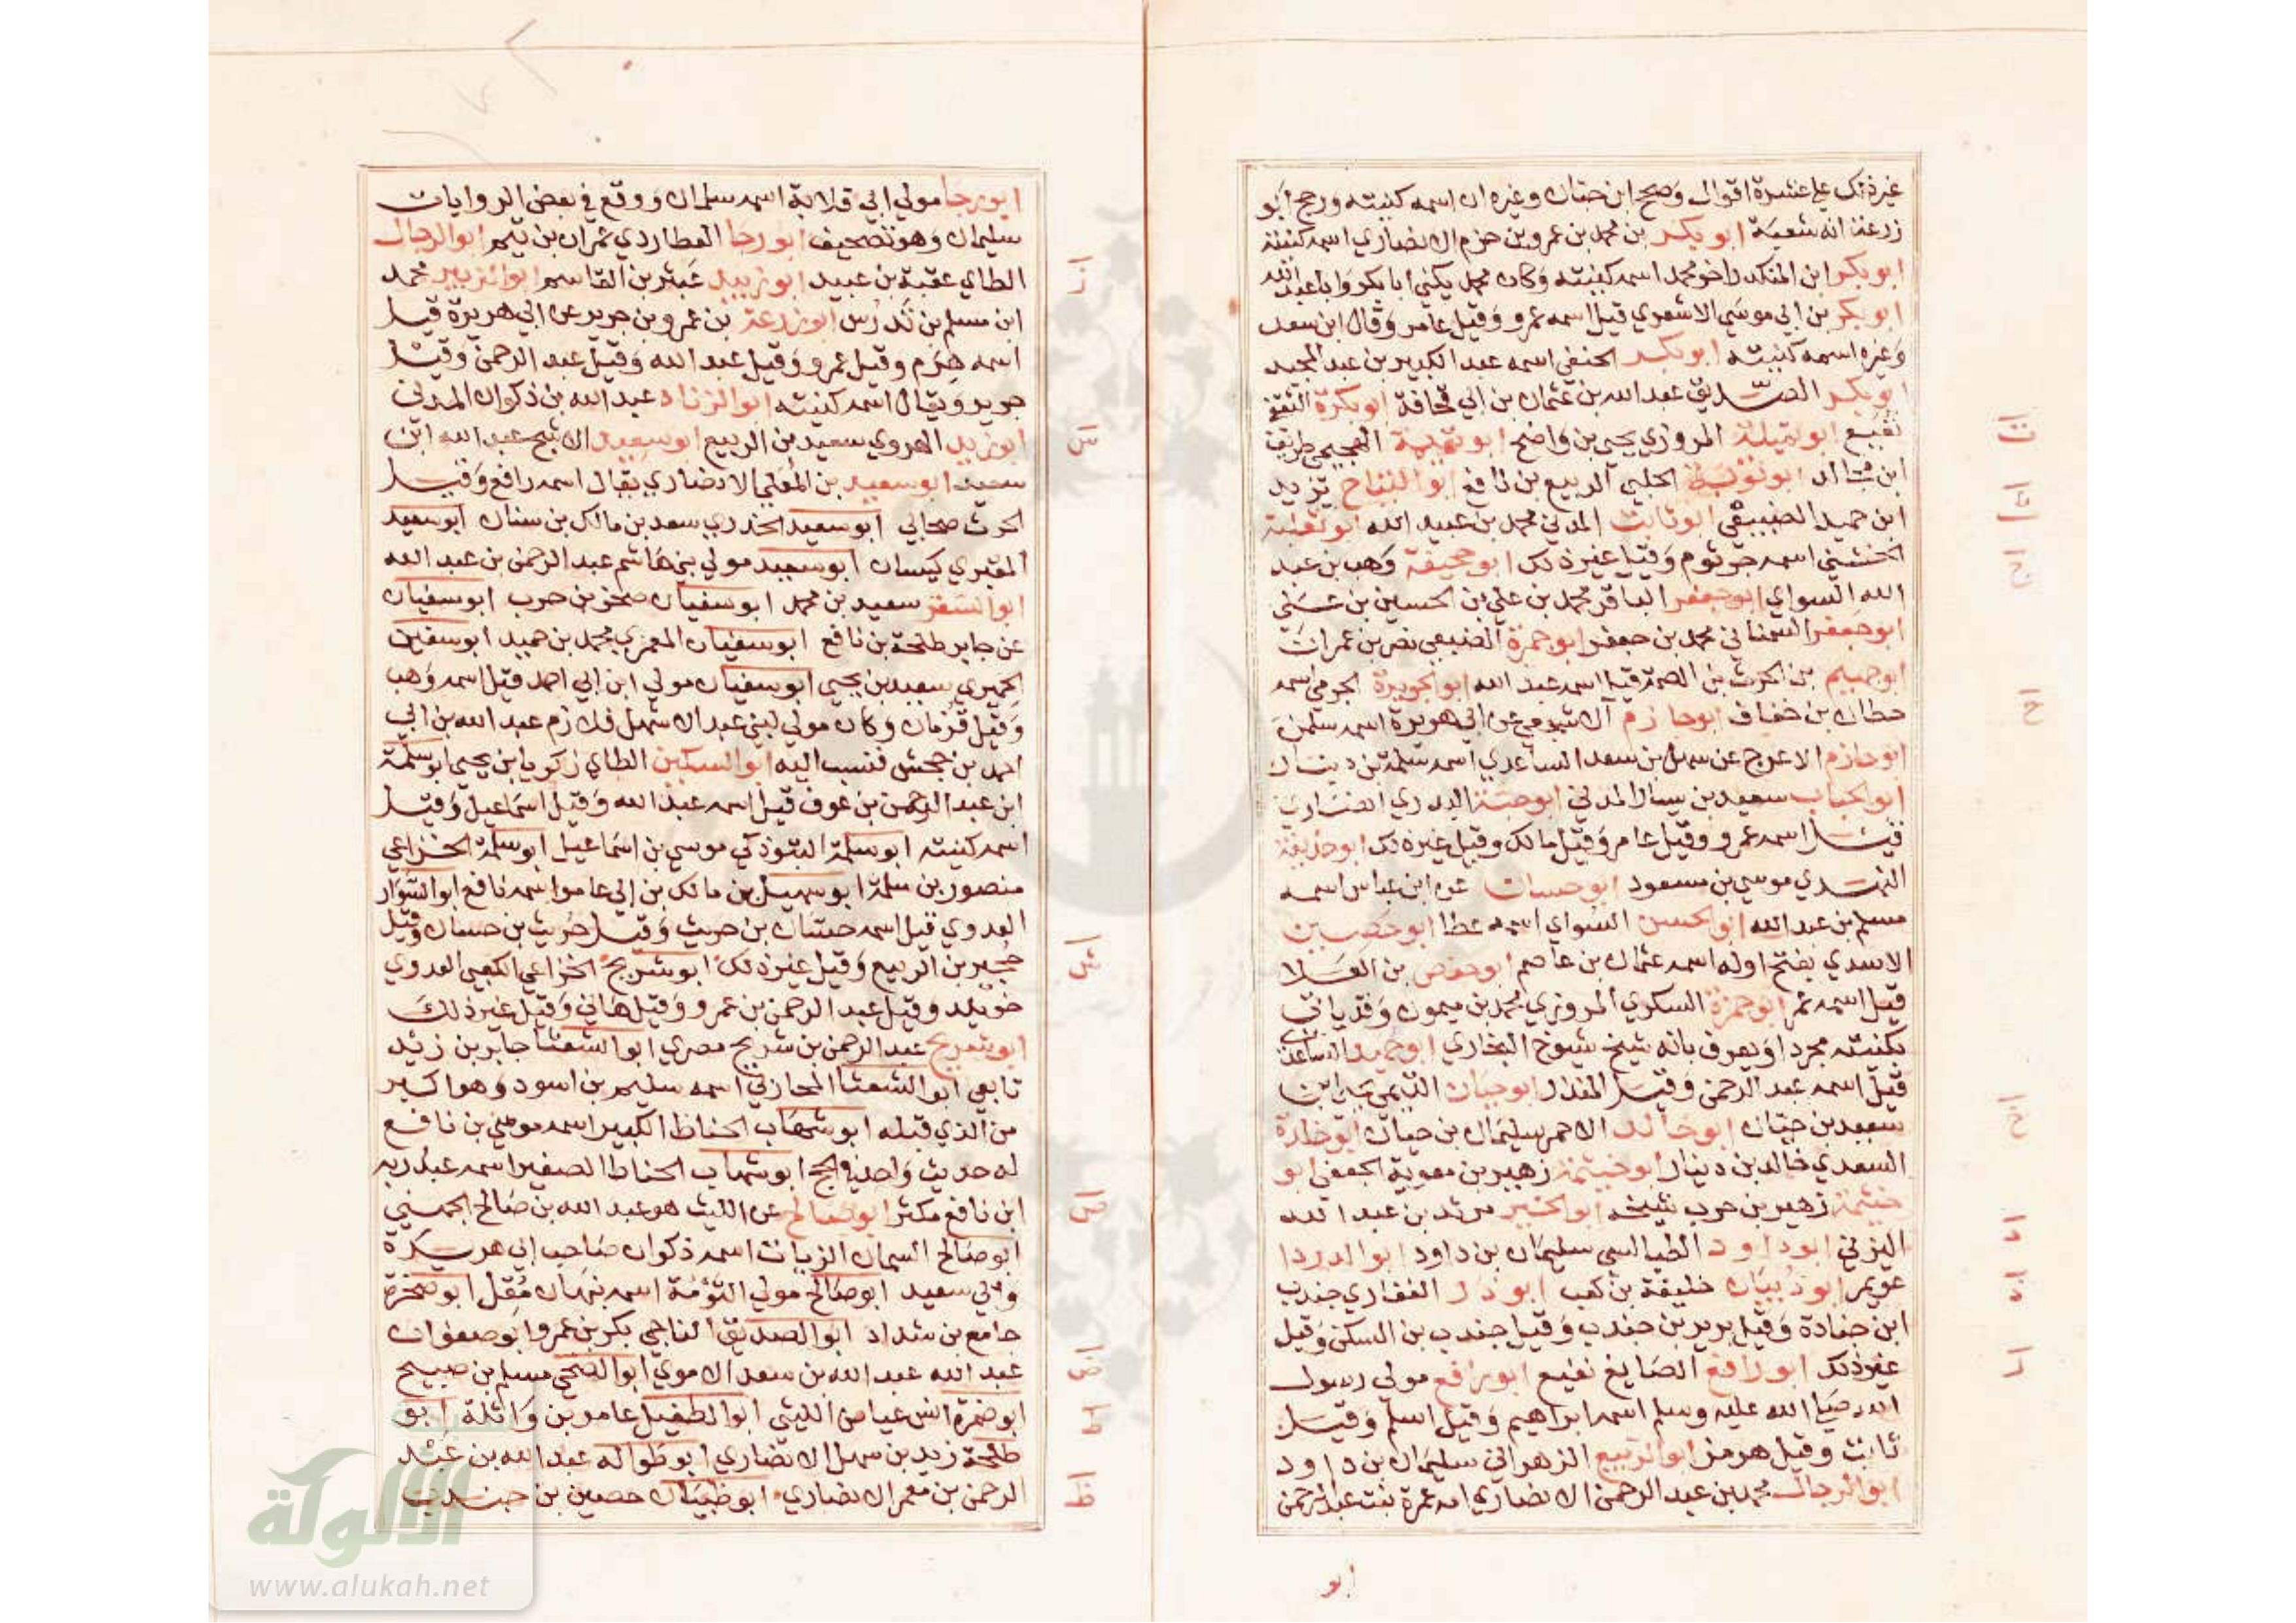 غير ذلك علي عشرة اقوال وصحح ابن حبان وغيره ان اسمه كنيته ورجح ابو
زرعة انه شعبة ابو بكر بن محمد بن عمرو بن حزم الانصاري اسمه كنيته
ابو بكر ابن المنكدر اخو محمد اسمه كنيته وكان محمد يكني ابا بكر وابا عبد الله
ابو بكر بن ابي موسي الاشعري قيل اسمه عمرو وقيل عامر وقال ابن سعد
وغيره اسمه كنيته ابو بكر الحنفي اسمه عبد الكبير بن عبد المجيد
ابو بكر الصديق عبد الله بن عثمان بن ابي قحافة ابو بكرة الثقفي
نفيع ابو تميلة المروزي يحيي بن واضح ابو تميمة الهجيمي طريف
ابن مجالد ابو توبة الحلبي الربيع بن نافع ابو التياح يزيد
ابن حميد الضبيعي ابو ثابت المدني محمد بن عبيد الله ابو ثعلبة
الخشني اسمه جرثوم وقيل غير ذلك ابو جحيفة وهب بن عبد
الله السواي ابو جعفر الباقر محمد بن علي بن الحسين بن علي
ابو جعفر السمناني محمد بن جعفر ابو جمرة الضبعي نصر بن عمران
ابو جهيم بن الحرث بن الصمة قيل اسمه عبد الله ابو الجويرية الجرمي اسمه
حطان بن خفاف ابو حازم الاشجعي عن ابي هريرة اسمه سلمن
ابو حازم الاعرج عن سهل بن سعد الساعدي اسمه سلمة بن دينار
ابو الحباب سعيد بن يسار المدني ابو حبة البدري انصاري
قيل اسمه عمرو وقيل عامر وقيل مالك وقيل غير ذلك ابو حذيفة
النهدي موسي بن مسعود ابو حسان عن ابن عباس اسمه
مسلم بن عبد الله ابو الحسن السواي اسمه عطا ابو حصين
الاسدي بفتح اوله اسمه عثمان بن عاصم ابو حفص بن العلا
قيل اسمه عمر ابو حمزة السكري المروزي محمد بن ميمون وقد ياتي
بكنيته مجردا ويعرف بانه شيخ شيوخ البخاري ابو حميد الساعدي
قيل اسمه عبد الرحمن وقيل المنذر ابو حيان التيمي يحيي ابن
سعيد بن حيان ابو خالد الاحمر سليمان بن حيان ابو خلدة
السعدي خالد بن دينار ابو خيثمة زهير بن معوية الجعفي ابو
خيثمة زهير بن حرب شيخه ابو الخير مرثد بن عبد الله
اليزني ابو داود الطيالسي سليمان بن داود ابو الدردا
عويمر ابو ذبيان خليفة بن كعب ابو ذر الغفاري جندب
ابن جنادة وقيل برير بن جندب وقيل جندب بن السكن وقيل
غير ذلك ابو رافع الصايغ نفيع ابو رافع مولي رسول
الله صلي الله عليه وسلم اسمه ابراهيم وقيل اسلم وقيل
ثابت وقيل هرمز ابو الربيع الزهراني سليمان بن داود
ابو الرجال محمد بن عبد الرحمن الانصاري امه عمرة بنت عبد الرحمن
ابو
ات
اث
اج
اح
اخ
اد
اذ
ار
ابو رجا مولي ابي قلابة اسمه سلمان ووقع في بعض الروايات
سليمان وهو تصحيف ابو رجا العطاردي عمران بن تيم ابو الرحال
الطاي عقبة بن عبيد ابو زبيد عبثر بن القاسم ابو الزبير محمد
ابن مسلم بن تدرس ابو زرعة بن عمرو بن جرير عن ابي هريرة قيل
اسمه هرم وقيل عمرو وقيل عبد الله وقيل عبد الرحمن وقيل
جرير ويقال اسمه كنيته ابو الزناد عبد الله بن ذكوان المدني
ابو زيد الهروي سعيد بن الربيع ابو سعيد الاشج عبد الله ابن
سعيد ابو سعيد بن المعلي الانصاري يقال اسمه رافع وقيل
الحرث صحابي ابو سعيد الخدري سعد بن مالك بن سنان ابو سعيد
المقبري كيسان ابو سعيد مولي بني هاشم عبد الرحمن بن عبد الله
ابو السفر سعيد بن محمد ابو سفيان صخر بن حرب ابو سفيان
عن جابر طلحة بن نافع ابو سفيان المعمري محمد بن حميد ابو سفين
الحميري سعيد بن يحيي ابو سفيان مولي ابن ابي احمد قيل اسمه وهب
وقيل قزمان وكان مولي لبني عبد الاشهل فلازم عبد الله بن ابي
احمد بن جحش فنسب اليه ابو السكين الطاي زكريا بن يحيي ابو سلمة
ابن عبد الرحمن بن عوف قيل اسمه عبد الله وقيل اسماعيل وقيل
اسمه كنيته ابو سلمة التبوذكي موسي بن اسماعيل ابو سلمة الخزاعي
منصور بن سلمة ابو سهيل بن مالك بن ابي عامر اسمه نافع ابو السوار
العدوي قيل اسمه حسان بن حريث وقيل حريث بن حسان وقيل
حجير بن الربيع وقيل غير ذلك ابو شريح الخزاعي الكعبي العدوي
خويلد وقيل عبد الرحمن بن عمرو وقيل هاني وقيل غير ذلك
ابو شريح عبد الرحمن بن شريح مصري ابو الشعثا جابر بن زيد
تابعي ابو الشعثا المحاربي اسمه سليم بن اسود وهو اكبر
من الذي قبله ابو شهاب الحناط الكبير اسمه موسي بن نافع
له حديث واحد في الحج ابو شهاب الحناط الصغير اسمه عبد ربه
ابن نافع مكثر ابو صالح عن الليث هو عبد الله بن صالح الجهني
ابو صالح السمان الزيات اسمه ذكوان صاحب ابي هريرة
وابي سعيد ابو صالح مولي التؤمة اسمه نبهان مقل ابو صخرة
جامع بن شداد ابو الصديق الناجي بكر بن عمرو ابو صفوان
عبد الله عبد الله بن سعد الاموي ابو الضحي مسلم بن صبيح
ابو ضمرة انس عياض الليثي ابو الطفيل عامر بن واثلة ابو
طلحة زيد بن سهل الانصاري ابو طواله عبد الله بن عبد
الرحمن بن معمر الانصاري ابو ظبيان حصين بن جندب
از
اس
اش
اص
اض
اط
اظ
الألوكة
www.alukah.net